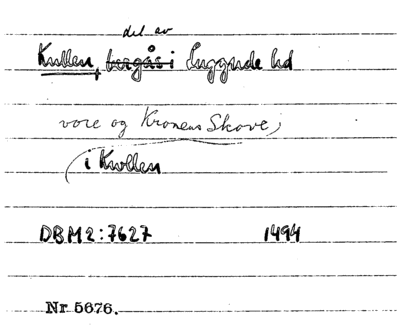 del av
Kullen, bergås i Luggude hd
vore og Kronens Skove,
i Kwllen
DBM2:7627 1494
Nr 5676.